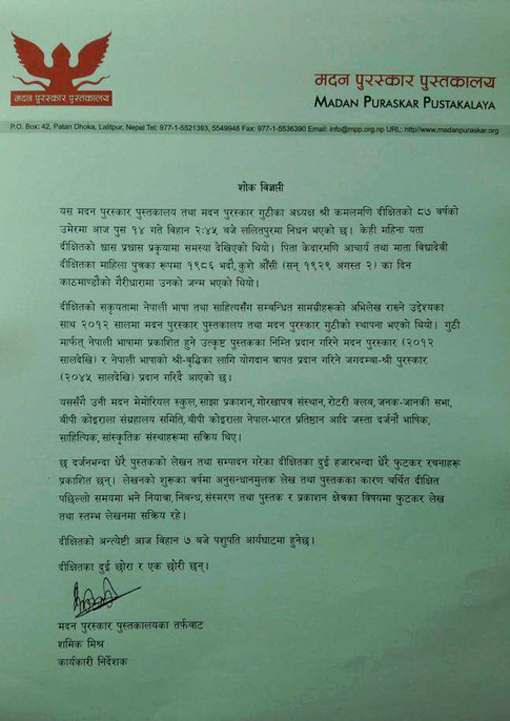 मदन पुरस्कार पुस्तकालय
मदन पुरस्कार पुस्तकालय
MADAN PURASKAR PUSTAKALAYA
P.O. Box: 42, Patan Dhoka, Lalitpur, Nepal Tel: 977-1-5521393, 5549948 Fax: 977-1-5536390 Email: info@mpp.org.np URL: http//www.madanpuraskar.org
शोक विज्ञप्ती
यस मदन पुरस्कार पुस्तकालय तथा मदन पुरस्कार गुठीका अध्यक्ष श्री कमलमणि दीक्षितको ८७ वर्षको
उमेरमा आज पुस १४ गते बिहान २:४५ बजे ललितपुरमा निधन भएको छ। केही महिना यता
दीक्षितको श्वास प्रश्वास प्रकृयामा समस्या देखिएको थियो। पिता केदारमणि आचार्य तथा माता विद्यादेवी
दीक्षितका माहिला पुत्रका रूपमा १९८६ भदौ, कुशे औँसी (सन् १९२९ अगस्त २) का दिन
काठमाण्डौको गैरीधारामा उनको जन्म भएको थियो।
दीक्षितको सकृयतामा नेपाली भाषा तथा साहित्यसँग सम्बन्धित सामग्रीहरूको अभिलेख राख्ने उद्देश्यका
साथ २०१२ सालमा मदन पुरस्कार पुस्तकालय तथा मदन पुरस्कार गुठीको स्थापना भएको थियो। गुठी
मार्फत् नेपाली भाषामा प्रकाशित हुने उत्कृष्ट पुस्तकका निम्ति प्रदान गरिने मदन पुरस्कार (२०१२
सालदेखि) र नेपाली भाषाको श्री-वृद्धिका लागि योगदान बापत प्रदान गरिने जगदम्बा-श्री पुरस्कार
(२०४५ सालदेखि) प्रदान गरिदै आएको छ।
यससँगै उनी मदन मेमोरियल स्कुल, साझा प्रकाशन, गोरखापत्र संस्थान, रोटरी क्लब, जनक-जानकी सभा,
बीपी कोइराला संग्रहालय समिति, बीपी कोइराला नेपाल-भारत प्रतिष्ठान आदि जस्ता दर्जनौं भाषिक,
साहित्यिक, सांस्कृतिक संस्थाहरूमा सक्रिय थिए।
छ दर्जनभन्दा धेरै पुस्तकको लेखन तथा सम्पादन गरेका दीक्षितका दुई हजारभन्दा धेरै फुटकर रचनाहरू
प्रकाशित छन्। लेखनको शुरूका वर्षमा अनुसन्धानमुलक लेख तथा पुस्तकका कारण चर्चित दीक्षित
पछिल्लो समयमा भने नियात्रा, निबन्ध, संस्मरण तथा पुस्तक र प्रकाशन क्षेत्रका विषयमा फुटकर लेख
तथा स्तम्भ लेखनमा सक्रिय रहे।
दीक्षितको अन्त्येष्टी आज बिहान ७ बजे पशुपति आर्यघाटमा हुनेछ।
दीक्षितका दुई छोरा र एक छोरी छन्।
मदन पुरस्कार पुस्तकालयका तर्फबाट
शमिक मिश्र
कार्यकारी निर्देशक